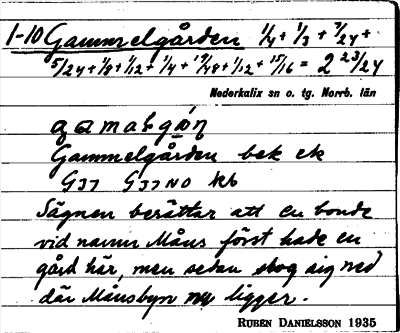 1-10 Gammelgården 1/4 + 1/3 + 7/24 +
5/24 + 1/8 + 1/12 + 1/4 + 17/48 + 1/12 + 15/16 = 2 23/24
Nederkalix sn o. tg. Norrb. län
Gammelgården bek ek
G37 G37NO kb
Sägnen berättar att en bonde
vid namn Måns först hade en
gård här, men sedan slog sig ned
där Månsbyn nu ligger.
RUBEN DANIELSSON 1935